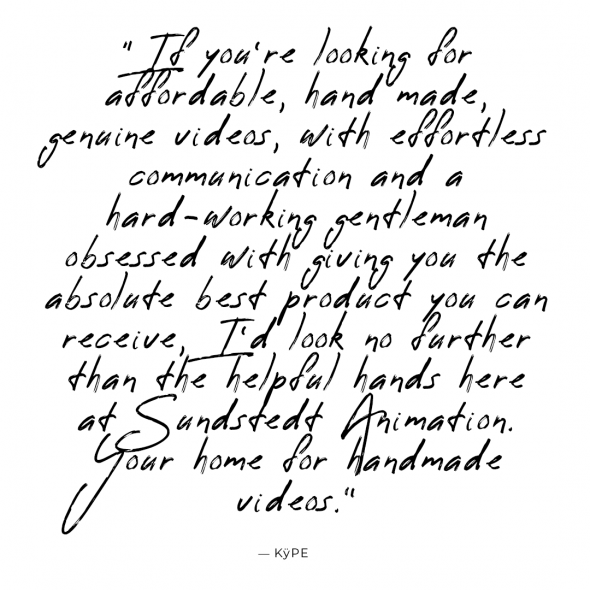 " If you're looking for
affordable, hand made,
genuine videos, with effortless
communication and a
hard-working gentleman
obsessed with giving you the
absolute best product you can
receive, I'd look no further
than the helpful hands here
at Sundstedt Animation.
Your home for handmade
videos."
— KÿPE